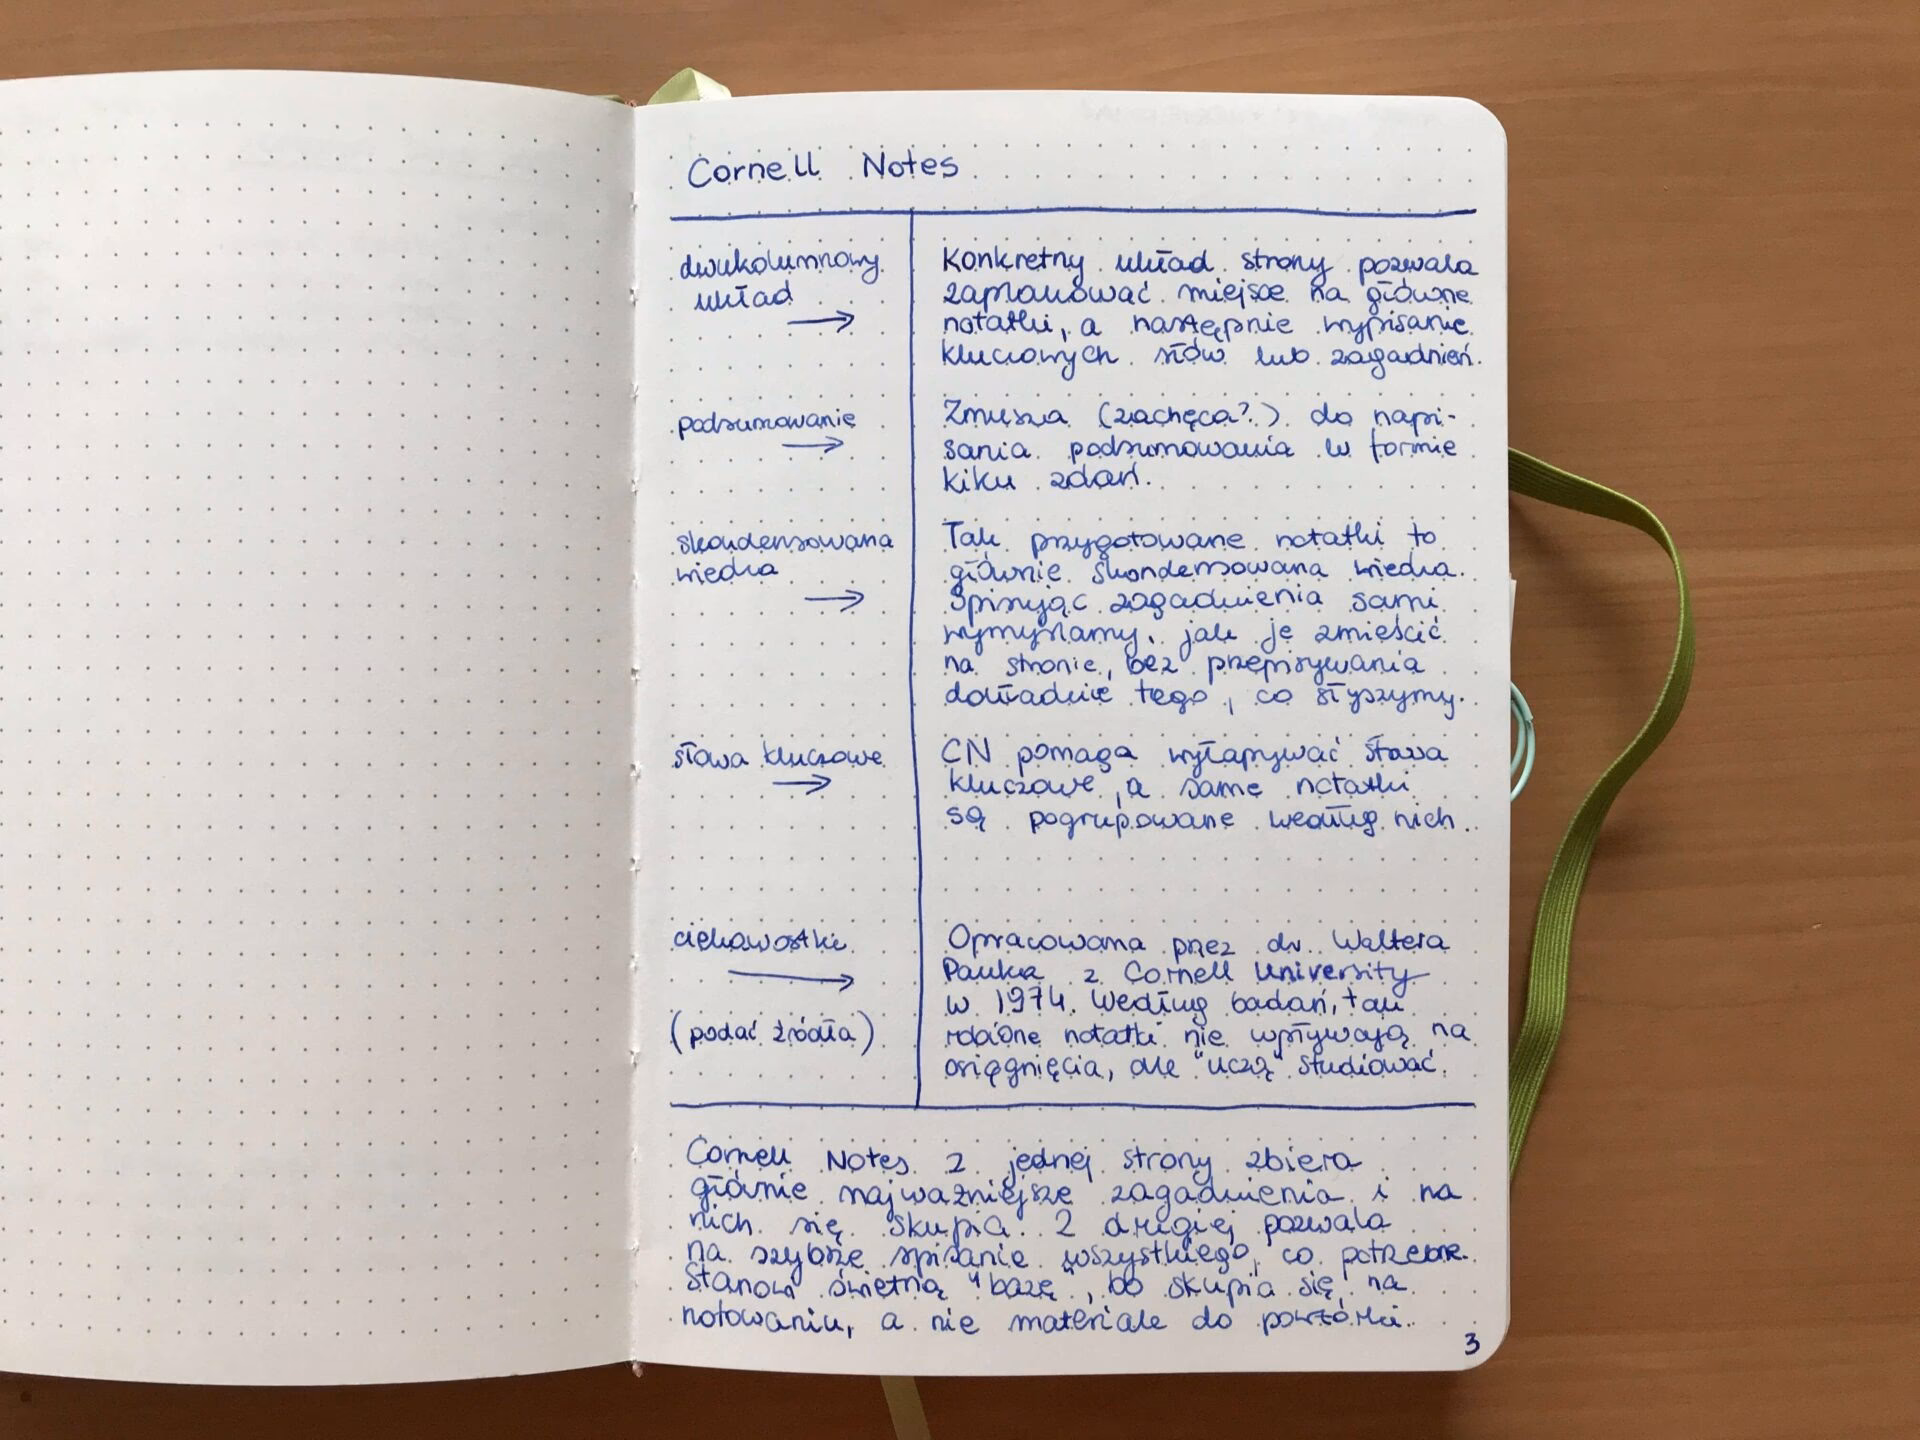 Cornell Notes
dwukolumnowy
układ
Konkretny układ strony pozwala
zaplanować miejsce na główne
notatki, a następnie wypisanie
kluczowych słów lub zagadnień.
podsumowanie
Zmusza (zachęca?) do napi-
sania podsumowania w formie
kiku zdań.
skondensowana
wiedza
Tak przygotowane notatki to
głównie skondensowana wiedza.
Spisując zagadnienia sami
wymyślamy, jak je zmieścić
na stronie, bez przepisywania
dokładnie tego, co słyszymy.
słowa kluczowe
CN pomaga wyłapywać słowa
kluczowe, a same notatki
są pogrupowane według nich.
ciekawostki
(podać źródła)
Opracowana przez dr. Waltera
Pauka z Cornell University
w 1974. Według badań, tak
robione notatki nie wpływają na
osiągnięcia, ale "uczą" studiować.
Cornell Notes z jednej strony zbiera
głównie najważniejsze zagadnienia i na
nich się skupia. Z drugiej pozwala
na szybsze spisanie wszystkiego, co potrzebne.
Stanowi świetną "bazę", bo skupia się na
notowaniu, a nie materiale do powtórki.
3